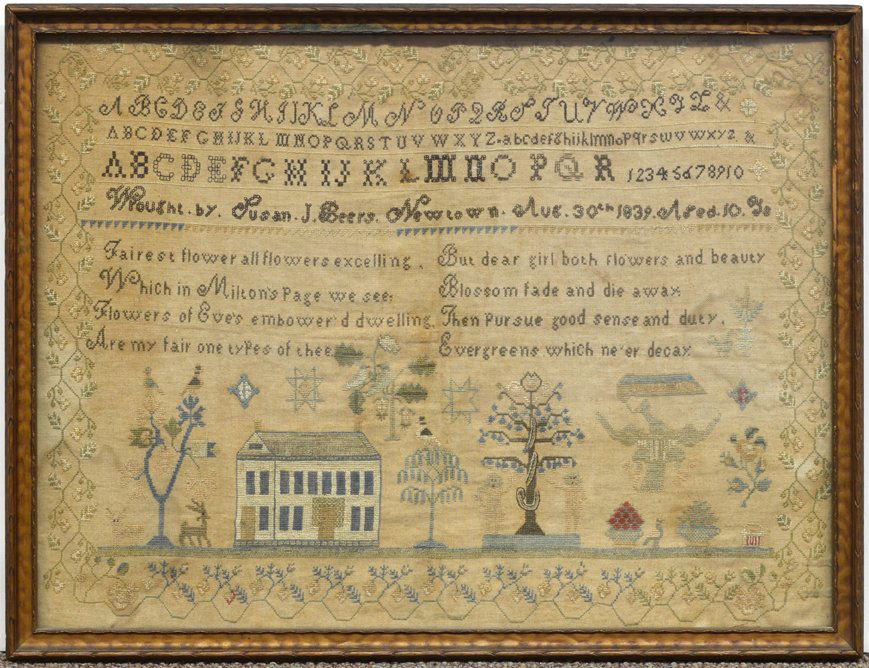 A B C D E F G H I J K L M N O P Q R S T U V W X Y Z &
A B C D E F G H I J K L M N O P Q R S T U V W X Y Z . a b c d e f g h i j k l m n o p q r s t u v w x y z . &
A B C D E F G H I J K L M N O P Q R 1 2 3 4 5 6 7 8 9 10
Wrought. by. Susan. J. Beers. Newtown. Aug. 30th 1839. Aged. 10. Ys
Fairest flower all flowers excelling,
Which in Milton's Page we see;
Flowers of Eve's embower'd dwelling,
Are my fair one types of thee.
But dear girl both flowers and beauty
Blossom fade and die away
Then Pursue good sense and duty,
Evergreens which ne'er decay.